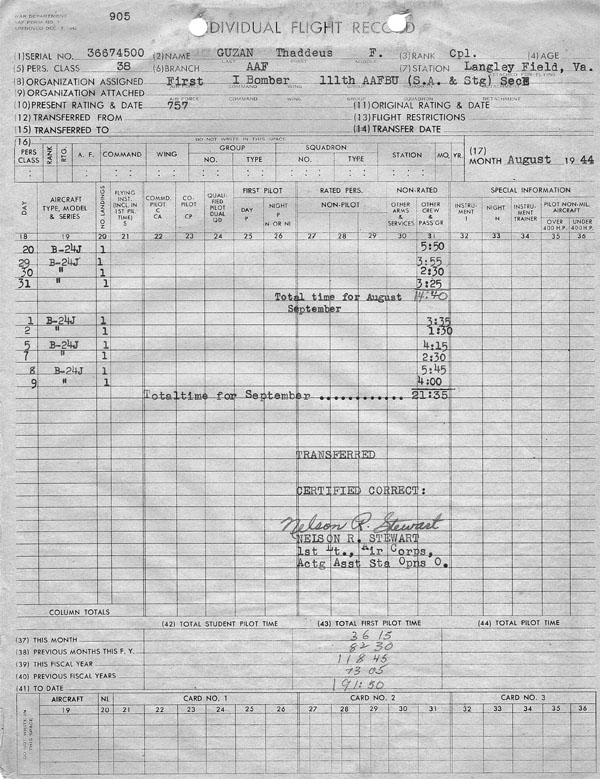 WAR DEPARTMENT
AAF FORM NO. 5
905
INDIVIDUAL FLIGHT RECORD
(1)SERIAL NO. 36674500 (2)NAME GUZAN Thaddeus F. (3)RANK Cpl. (4)AGE
LAST FIRST MIDDLE
(5) PERS. CLASS 38 (6)BRANCH AAF (7)STATION Langley Field, Va.
(8)ORGANIZATION ASSIGNED First I Bomber 111th AAFBU (S.A. & Stg) Sec
(9) ORGANIZATION ATTACHED
AIR FORCE COMMAND WING GROUP SQUADRON DETACHMENT
(10)PRESENT RATING & DATE 757 (11)ORIGINAL RATING & DATE
(12)TRANSFERRED FROM (13)FLIGHT RESTRICTIONS
(15) TRANSFERRED TO (14) TRANSFER DATE
DO NOT WRITE IN THIS SPACE
(16) PERS CLASS RANK RTG. A. F. COMMAND WING GROUP NO. TYPE SQUADRON NO. TYPE STATION MO. YR. (17) MONTH August 1944
DAY AIRCRAFT TYPE, MODEL & SERIES NO. LANDINGS FLYING INST. (INCL. IN 1ST PIL. TIME) S COMMD. PILOT C CA CO-PILOT CP QUALIFIED PILOT DUAL QD FIRST PILOT DAY P NIGHT P N OR NI RATED PERS. NON-PILOT NON-RATED OTHER ARMS & SERVICES OTHER CREW & PASS'GR SPECIAL INFORMATION INSTRUMENT I NIGHT N INSTRUMENT TRAINER PILOT NON-MIL. AIRCRAFT OVER 400 H.P. UNDER 400 H.P.
18 19 20 21 22 23 24 25 26 27 28 29 30 31 32 33 34 35 36
20 B-24J 1 5:50
29 B-24J 1 3:55
30 " 1 2:30
31 " 1 3:25
Total time for August 14:40
September
1 B-24J 1 3:35
2 " 1 1:30
5 B-24J 1 4:15
7 " 1 2:30
8 B-24J 1 5:45
9 " 1 4:00
Totaltime for September ............ 21:35
TRANSFERRED
CERTIFIED CORRECT:
Nelson R. Stewart
NELSON R. STEWART
1st Lt., Air Corps,
Actg Asst Sta Opns O.
COLUMN TOTALS
(42) TOTAL STUDENT PILOT TIME (43) TOTAL FIRST PILOT TIME (44) TOTAL PILOT TIME
(37) THIS MONTH 36 15
(38) PREVIOUS MONTHS THIS F. Y. 82 30
(39) THIS FISCAL YEAR 118 45
(40) PREVIOUS FISCAL YEARS 73 05
(41) TO DATE 191:50
AIRCRAFT NL CARD NO. 1 CARD NO. 2 CARD NO. 3
19 20 21 22 23 24 25 26 27 28 29 30 31 32 33 34 35 36
DO NOT WRITE IN THIS SPACE